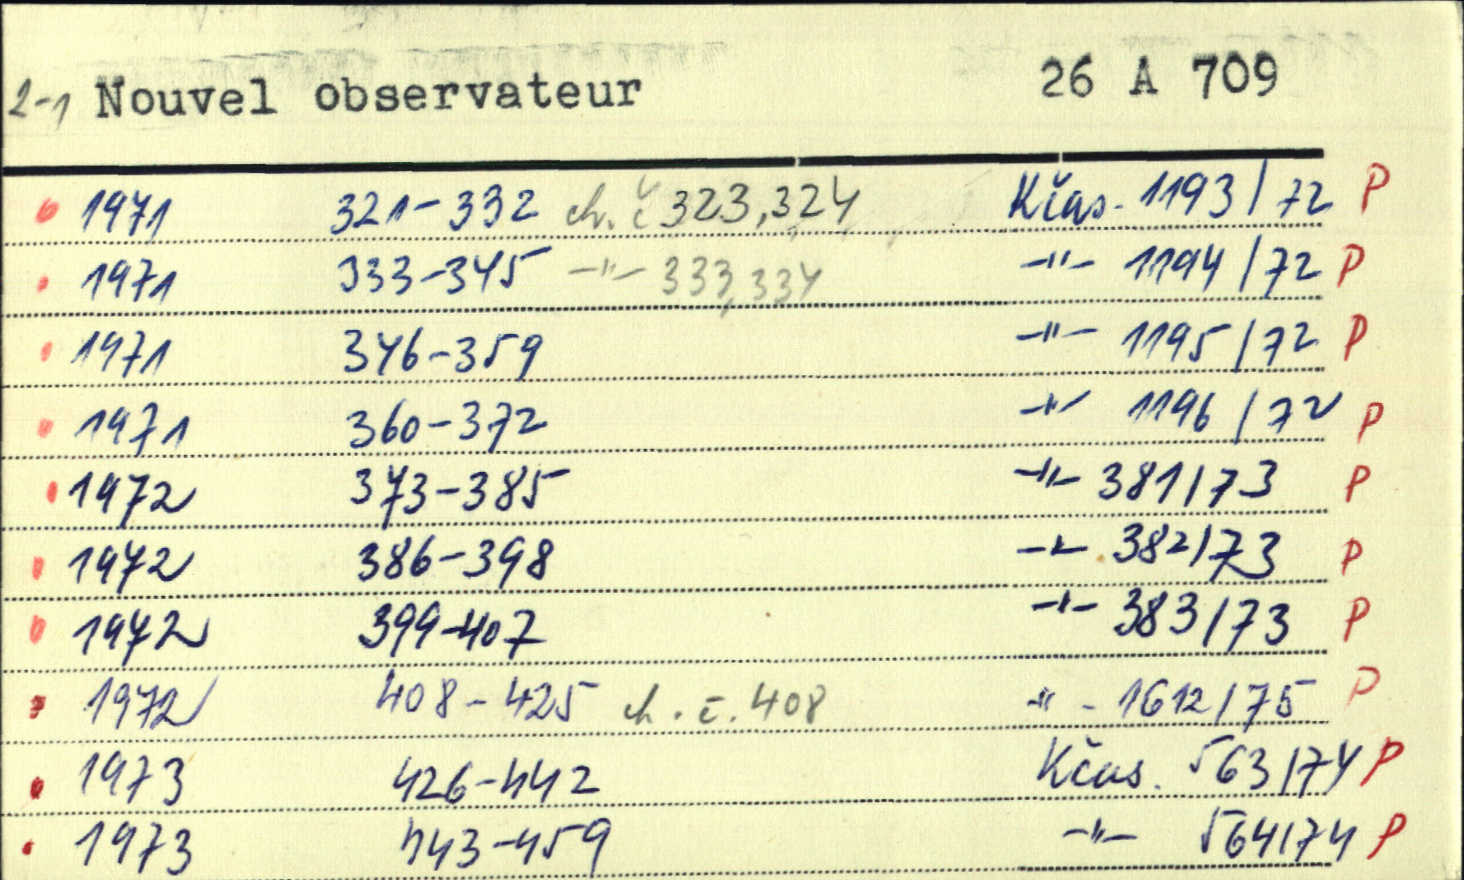 2-1 Nouvel observateur 26 A 709
1971 321-332 ch. č 323,324 Kčas. 1193/72 P
1971 333-345 -"- 333,334 -"- 1194/72 P
1971 346-359 -"- 1195/72 P
1971 360-372 -"- 1196/72 P
1972 373-385 -"- 381/73 P
1972 386-398 -"- 382/73 P
1972 399-407 -"- 383/73 P
1972 408-425 ch. č. 408 -"- 1612/75 P
1973 426-442 Kčas. 563/74 P
1973 443-459 -"- 564/74 P